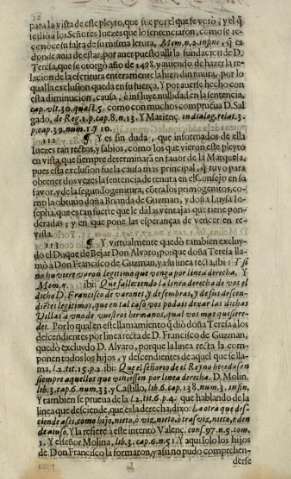 para la vista de este pleyto, que fue por el que se votò; y el q
se dió a los Señores Iuezes que lo sentenciaron, como se re-
conoce en falta de su misma letra, Mem.n.2. in fine, q̃ ca
donde mas de estas, por auer puesto alli la fundacion de D.
Teresa, que se otorgò año de 1428. y auiendo de hazer la re-
lacion de la escritura enteramente la han diminuta, por lo
qual la exclusion queda en su fuerça, Y por auerse hecho con
esta diminucion, causa, è influye nullidad en la sentencia,
cap. vlt. 30. quæst. 5. como con muchos comprueua D. Sal
gado, de Reg. 2. p. cap. 8. n. 13. y Matienç. in dialog. relat. 3.
p. cap. 39. num. 1. y 10.
112 ¶ Y es sin duda, que informados de ella
Iuezes tan rectos, y sabios, como los que vieron este pleyto
en vista, que siempre determinaràn en fauor de la Marquesa,
pues esta exclusion fue la causa mas principal, q̃ tuuo para
obtener dos vezes la sentencia de tenuta en el Consejo en su
fauor, y de la segundogenitura, cõtra los primogenitos, co-
mo la obtuuo doña Brianda de Guzman, y doña Luysa Io-
sepha, que es tan fuerte que le da las ventajas que tiene pon-
deradas; y en que pone las esperanças de vencer en re-
uista.
113 ¶ Y virtualmente quedò tambien exclu-
do el Duque de Bejar Don Aluaro, porque doña Teresa lla-
mò a Don Francisco de Guzman, y a su linea recta, ibi: Y si
no ha viere varon legitimo que venga por linea derecha. Y
Mem. n. ibi: Que falleciendo la linea derecha de vos el
dicho D. Francisco de varones, y de sembras, y de sus decen-
dietes legitimos, que en tal caso vos podais dexar las dichas
Villas a vno de vuestros hermanos, qual vos mas quisiere-
des. Por lo qual en este llamamiento q̃ diò doña Teresa a los
descendientes por linea recta de D. Francisco de Guzman,
quedò excluydo D. Aluaro, porque la linea recta la com-
ponen todos los hijos, y descendientes de aquel que se lla-
ma, l. 2. tit. 15. p. 2. ibi: Que el señorio de el Reyno heredassen
siempre aquellos que viniessen por linea derecha. D. Molin.
lib. 3. cap. 6. num. 33. y Castillo, lib. 6. cap. 138. num. 3. in fin.
Y tambien se prueua de la l. 2. tit. 6. p. 4. que hablando de la
linea que desciende, que es la derecha, dixo: La otra que di-
ciende assi como, hijo, nieto, ò viz, nieto, ò tras viz, nieto, y den
de ayuso. Y la refiere à este intento Valenç. cons. 97. n. 5. tom.
1. Y el señor Molina, lib. 3. cap. 6. n. 31. Y aqui solo los hijos
de Don Francisco la formaron, y assi no pudo comprehen-
derse